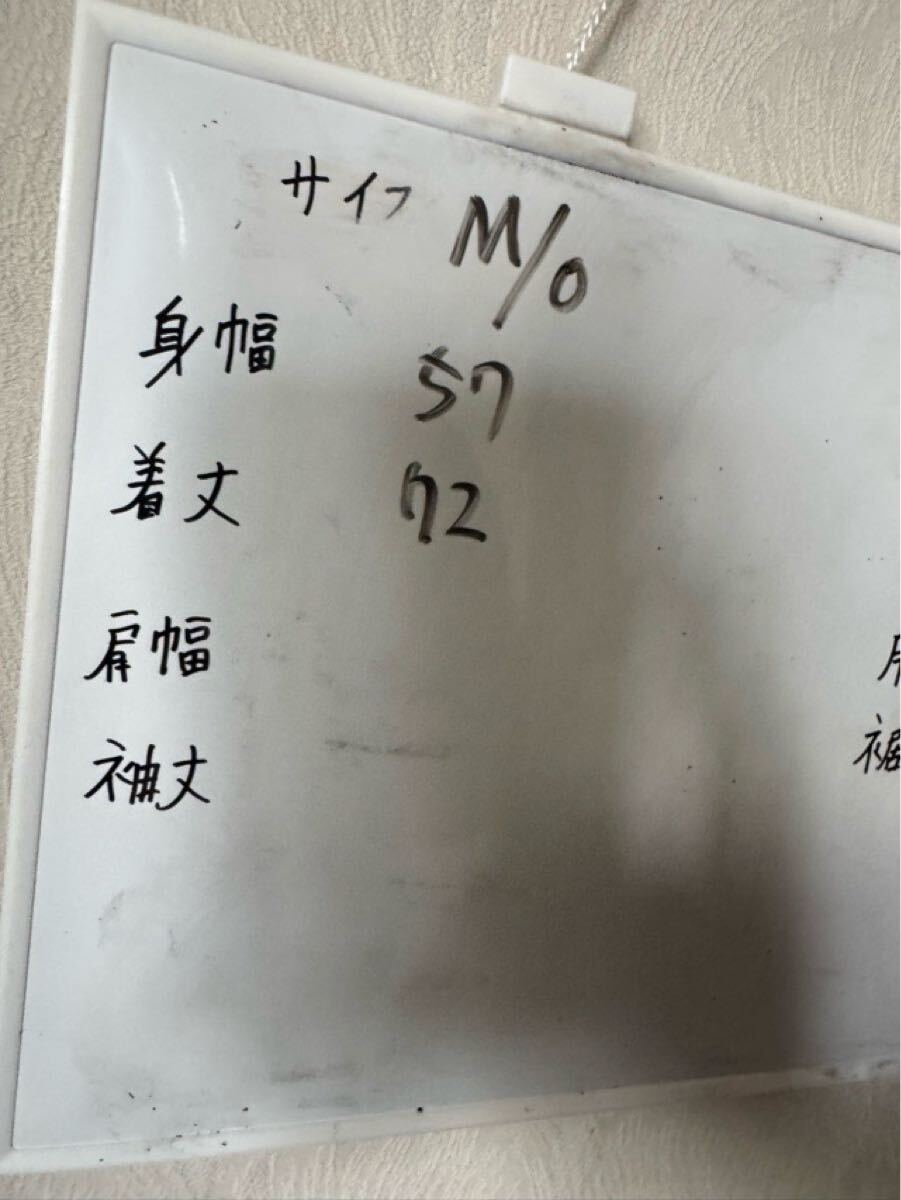 サイフ M/O
身幅 57
着丈 72
肩幅
袖丈
裾